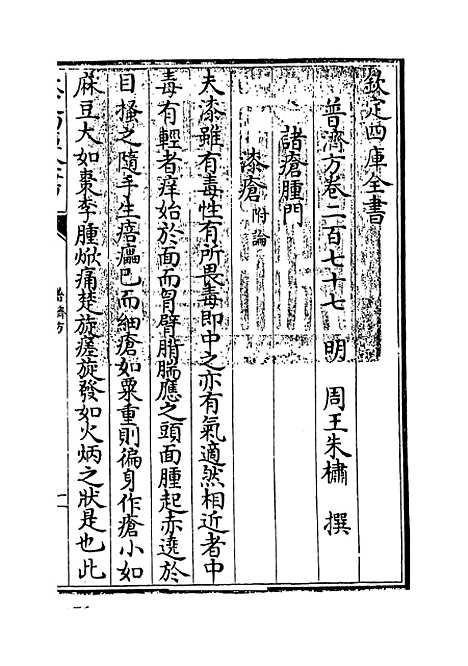 欽定四庫全書
普濟方卷二百七十七　明　周王朱橚　撰
諸瘡腫門
漆瘡附論
夫漆雖有毒性有所畏毒即中之亦有氣適然相近者中
毒有輕者痒始於面而胷臂䏶腨應之頭面腫起赤遶於
目搔之隨手生㾦㿔已而細瘡如粟重則徧身作瘡小如
麻豆大如棗李腫焮痛楚旋瘥旋發如火炳之狀是也此
普濟方